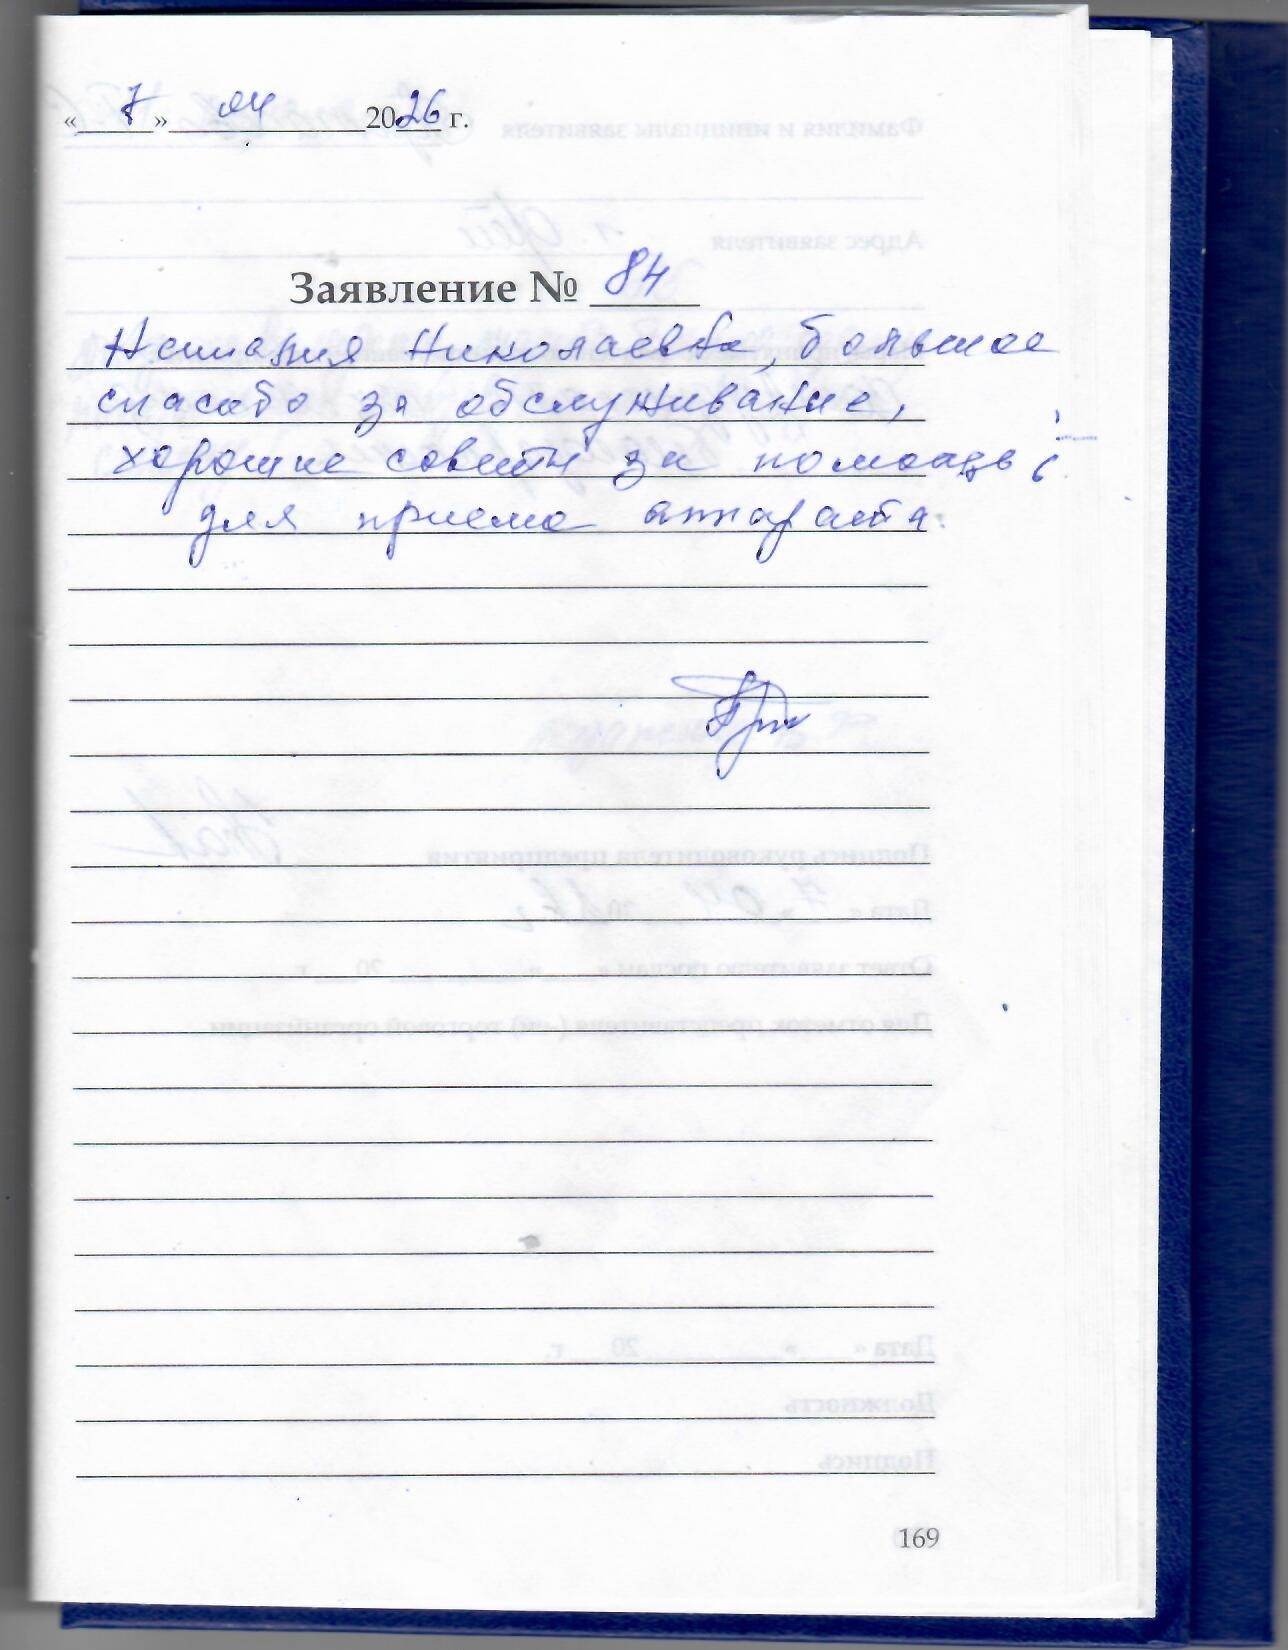 «7» 04 2026 г.
Заявление № 84
Наталия Николаевна, большое
спасибо за обслуживание,
хорошие советы за помощь в
для приема аппарата.
169